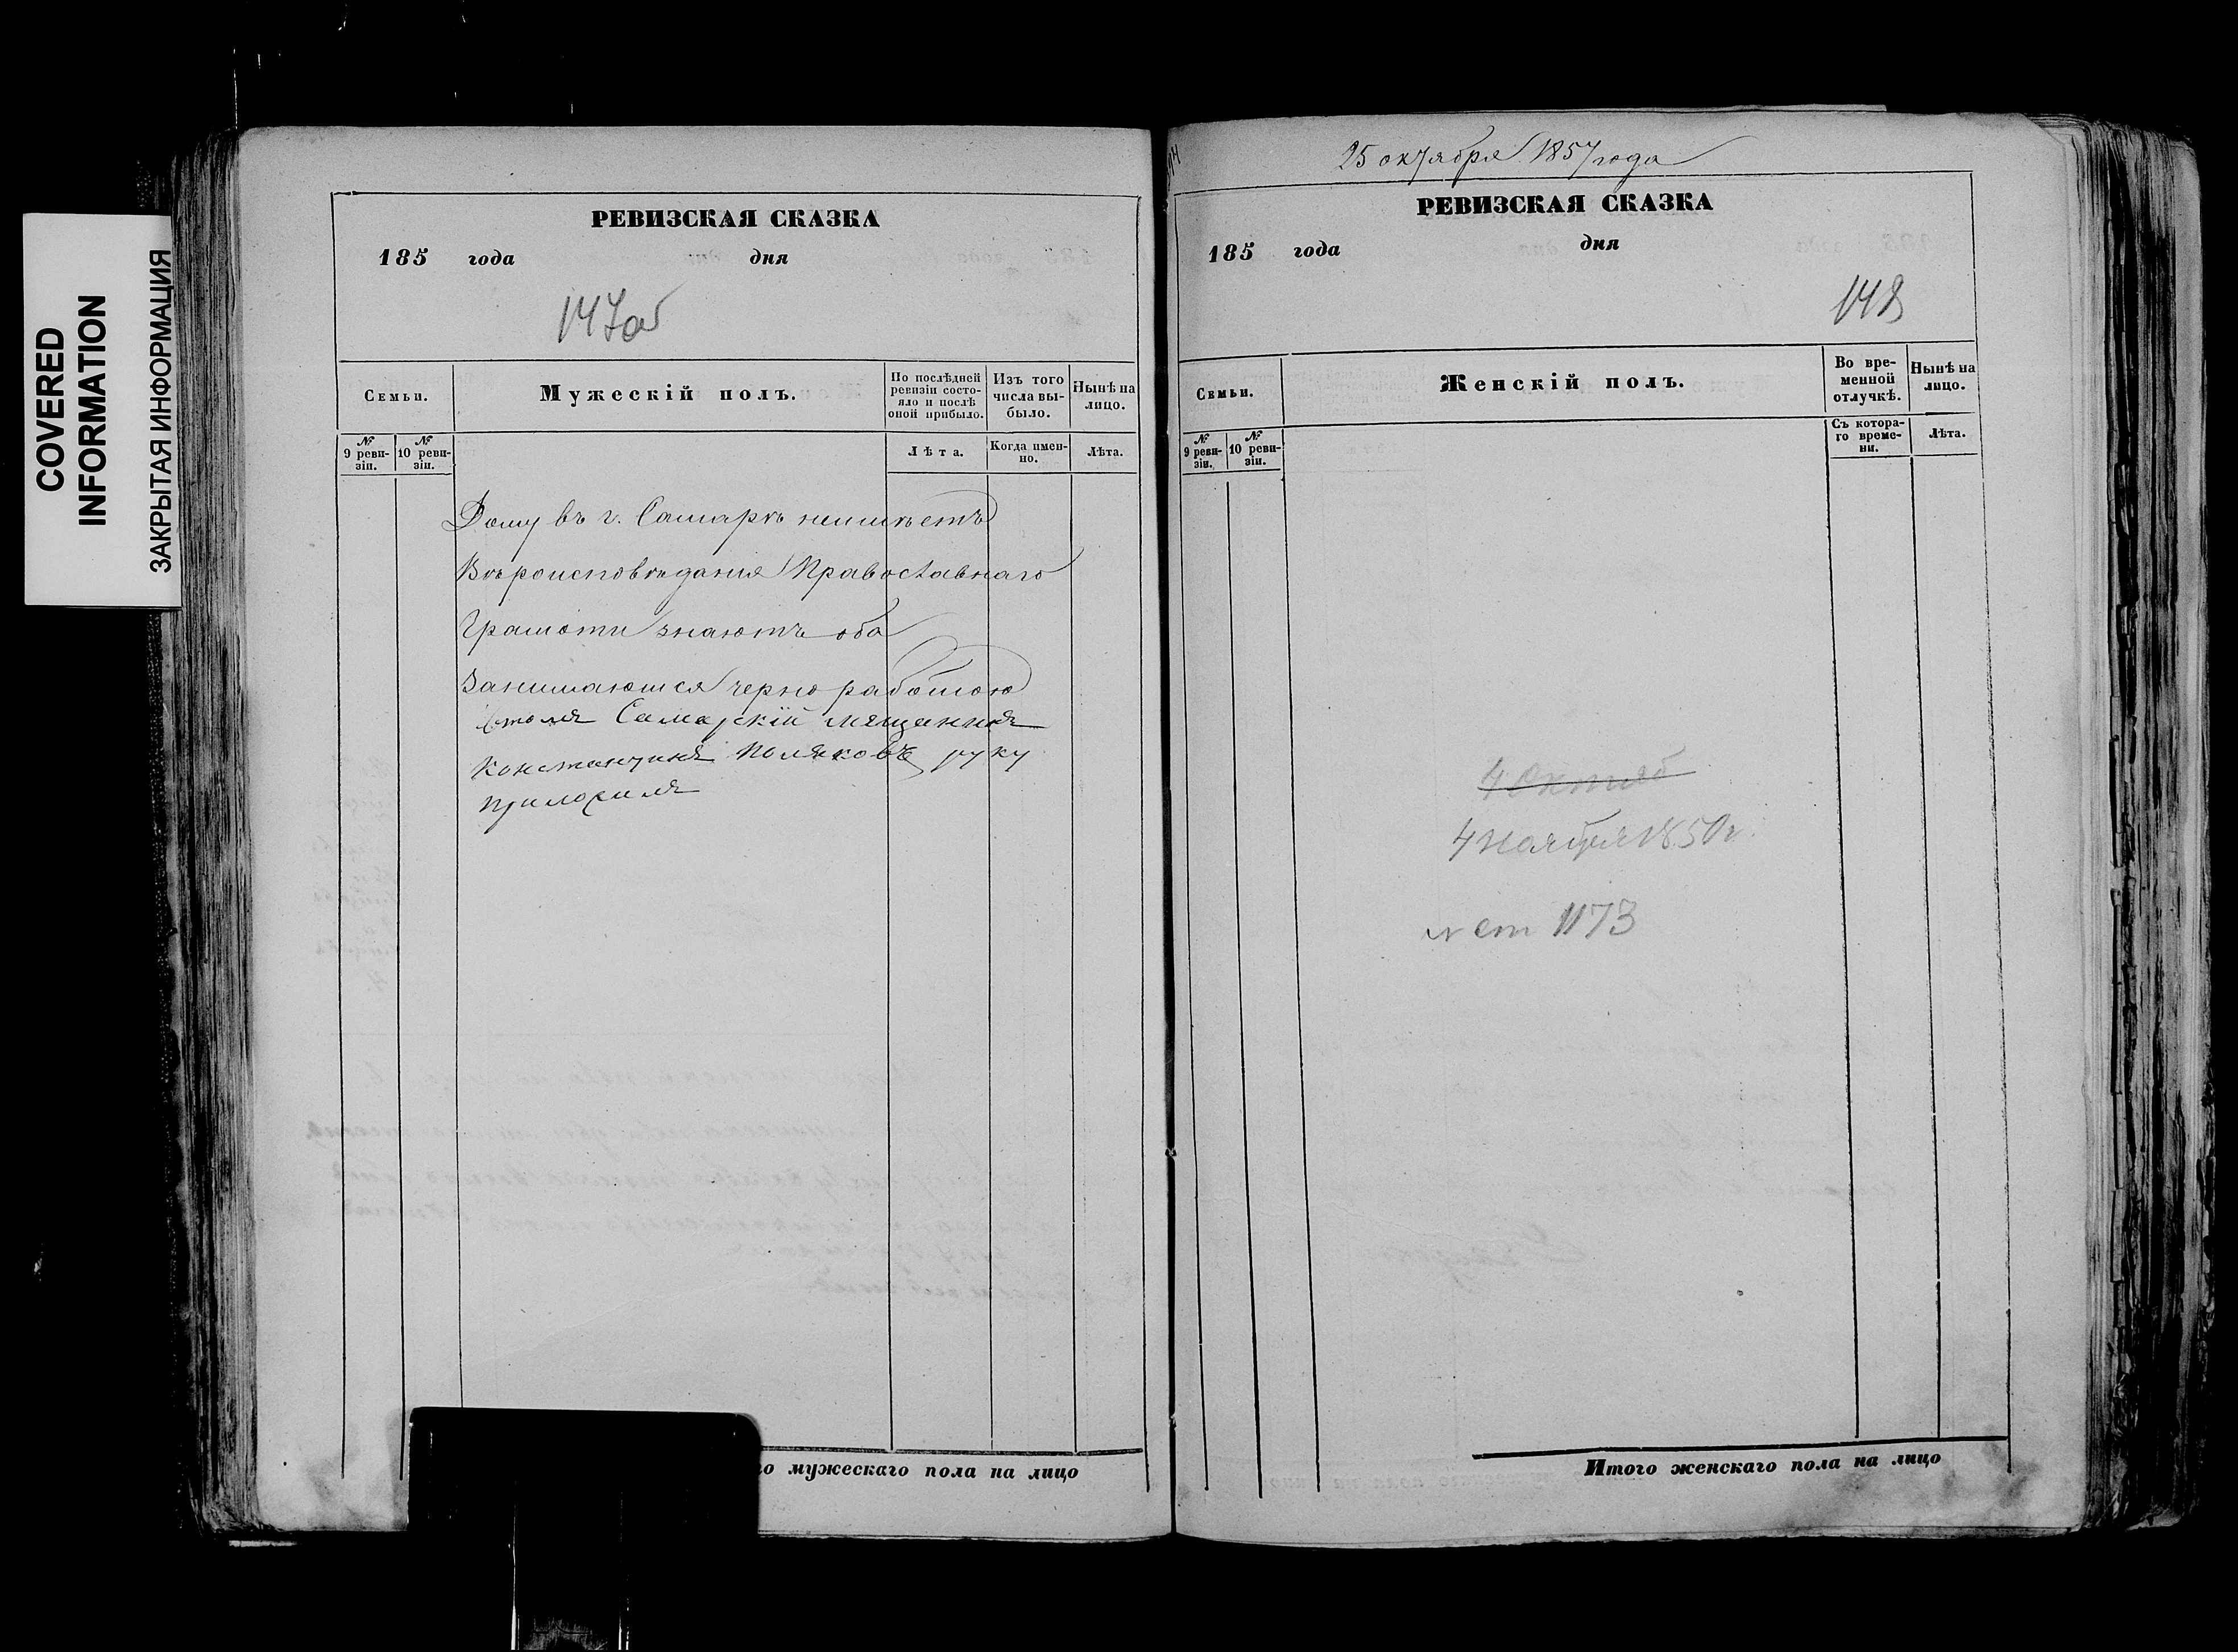 COVERED
INFORMATION
ЗАКРЫТАЯ ИНФОРМАЦИЯ
РЕВИЗСКАЯ СКАЗКА
185 года дня
147об
Семьи.
Мужескій полъ.
По послѣдней ревизіи состояло и послѣ оной прибыло.
Изъ того числа выбыло.
Нынѣ на лицо.
№ 9 ревизіи.
№ 10 ревизіи.
Лѣта.
Когда именно.
Лѣта.
Дому въ г. Самарѣ неимѣетъ
Вѣроисповѣданія Православнаго
Грамоти знаютъ оба
Занимаются черно работою
Самарскій мещанинъ
Константинъ Поляковъ руку
приложилъ
го мужескаго пола на лицо
25 октября 1857 года
РЕВИЗСКАЯ СКАЗКА
185 года дня
148
Семьи.
Женскій полъ.
Во временной отлучкѣ.
Нынѣ на лицо.
№ 9 ревизіи.
№ 10 ревизіи.
Съ котораго времени.
Лѣта.
4 Октяб
4 Ноября 1850 г.
ст 1173
Итого женскаго пола на лицо